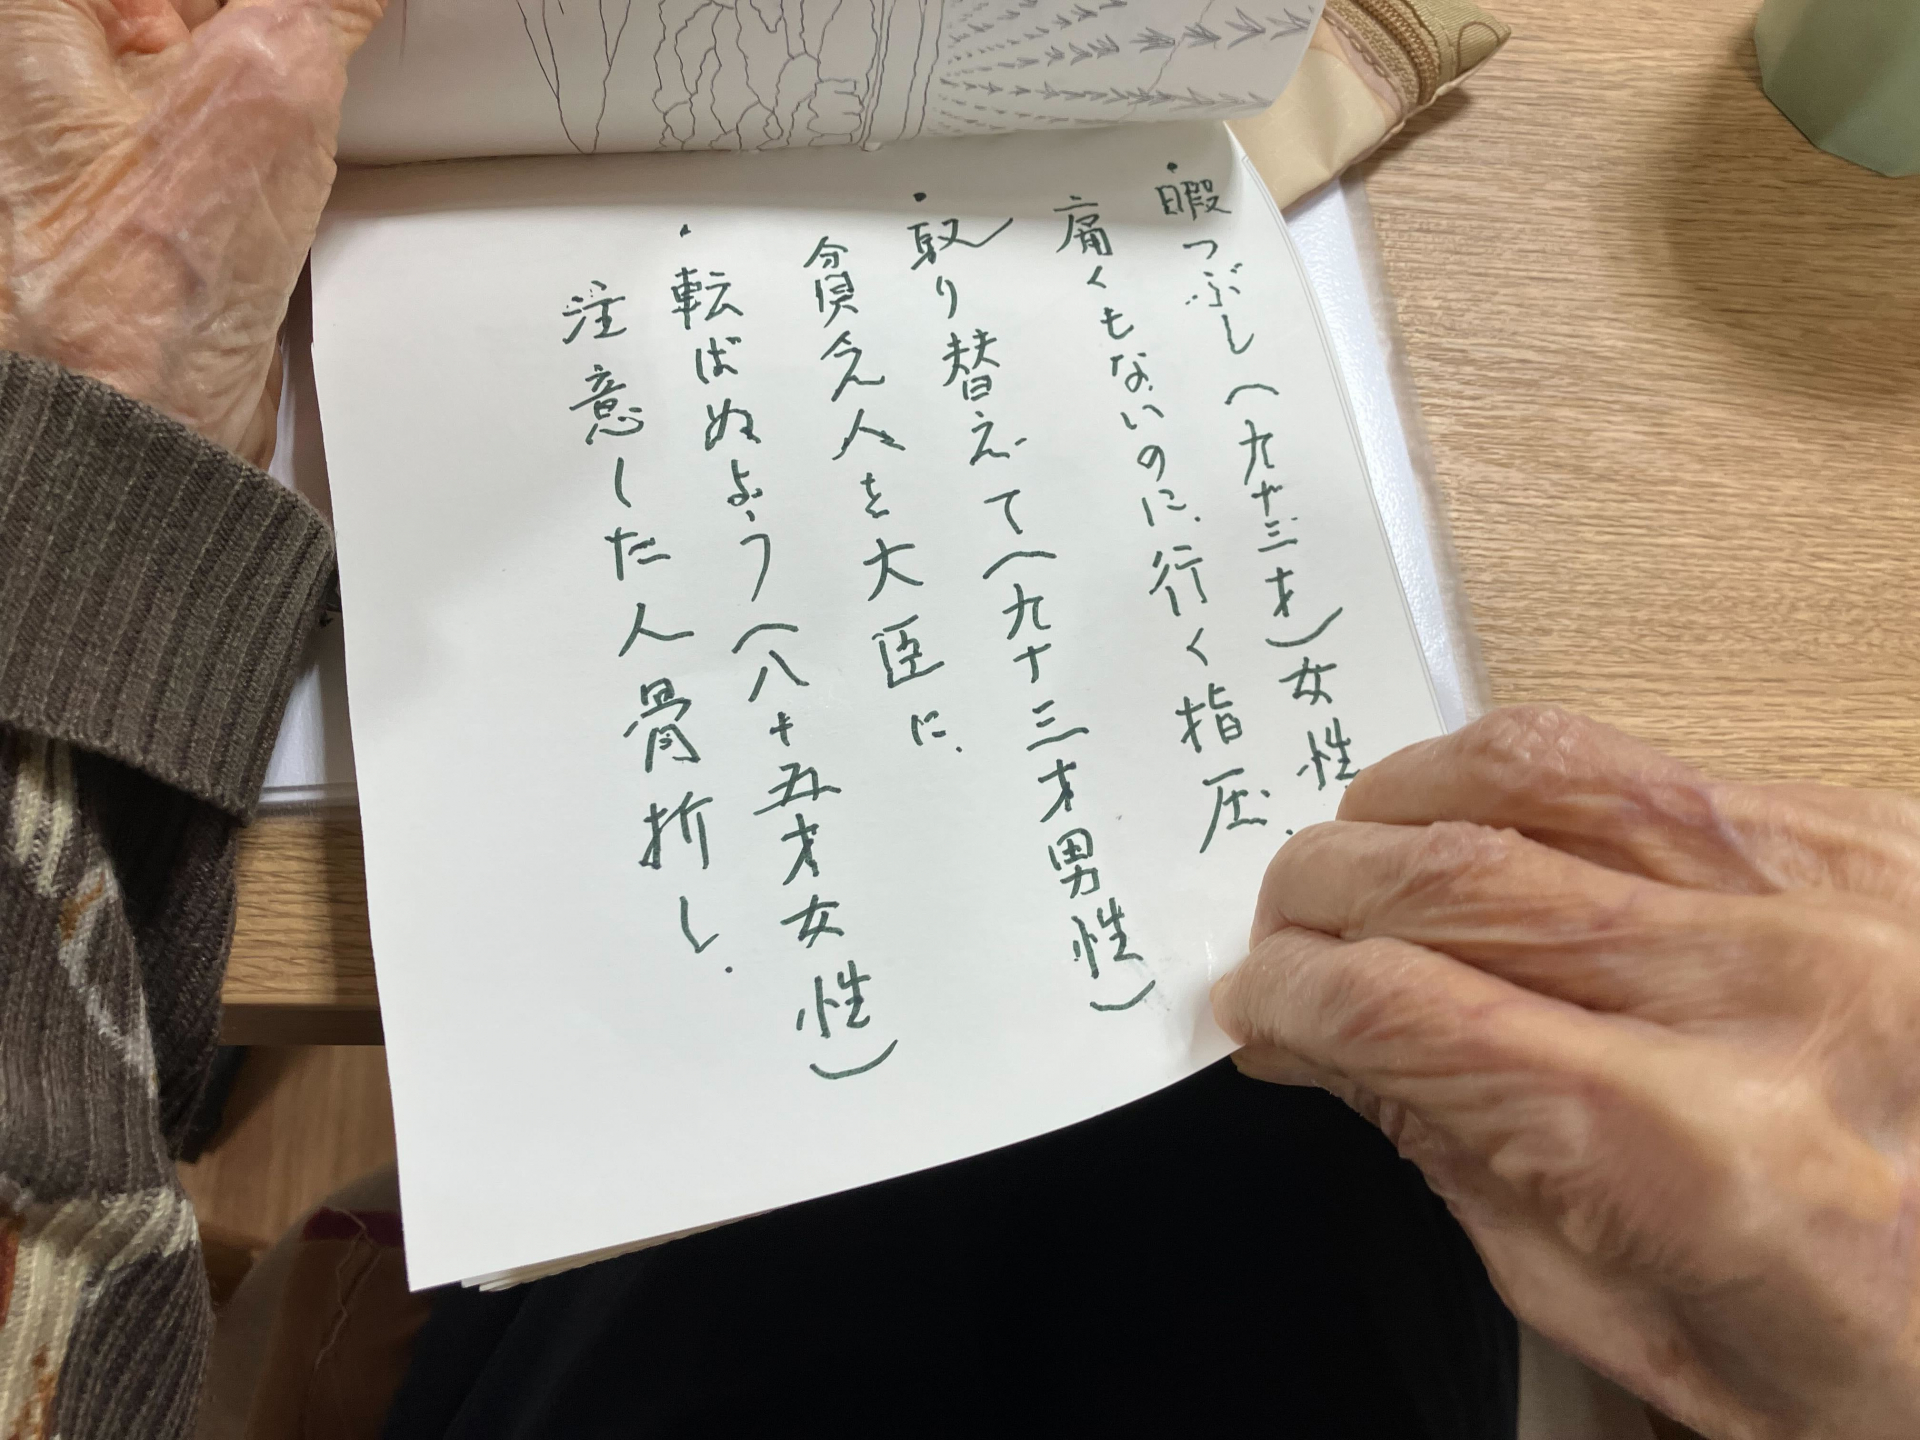 ・暇つぶし(九十三才)女性
痛くもないのに、行く指圧.
・取り替えて(九十三才男性)
貧乏人を大臣に、
・転ばぬよう(八十五才女性)
注意した人骨折し.